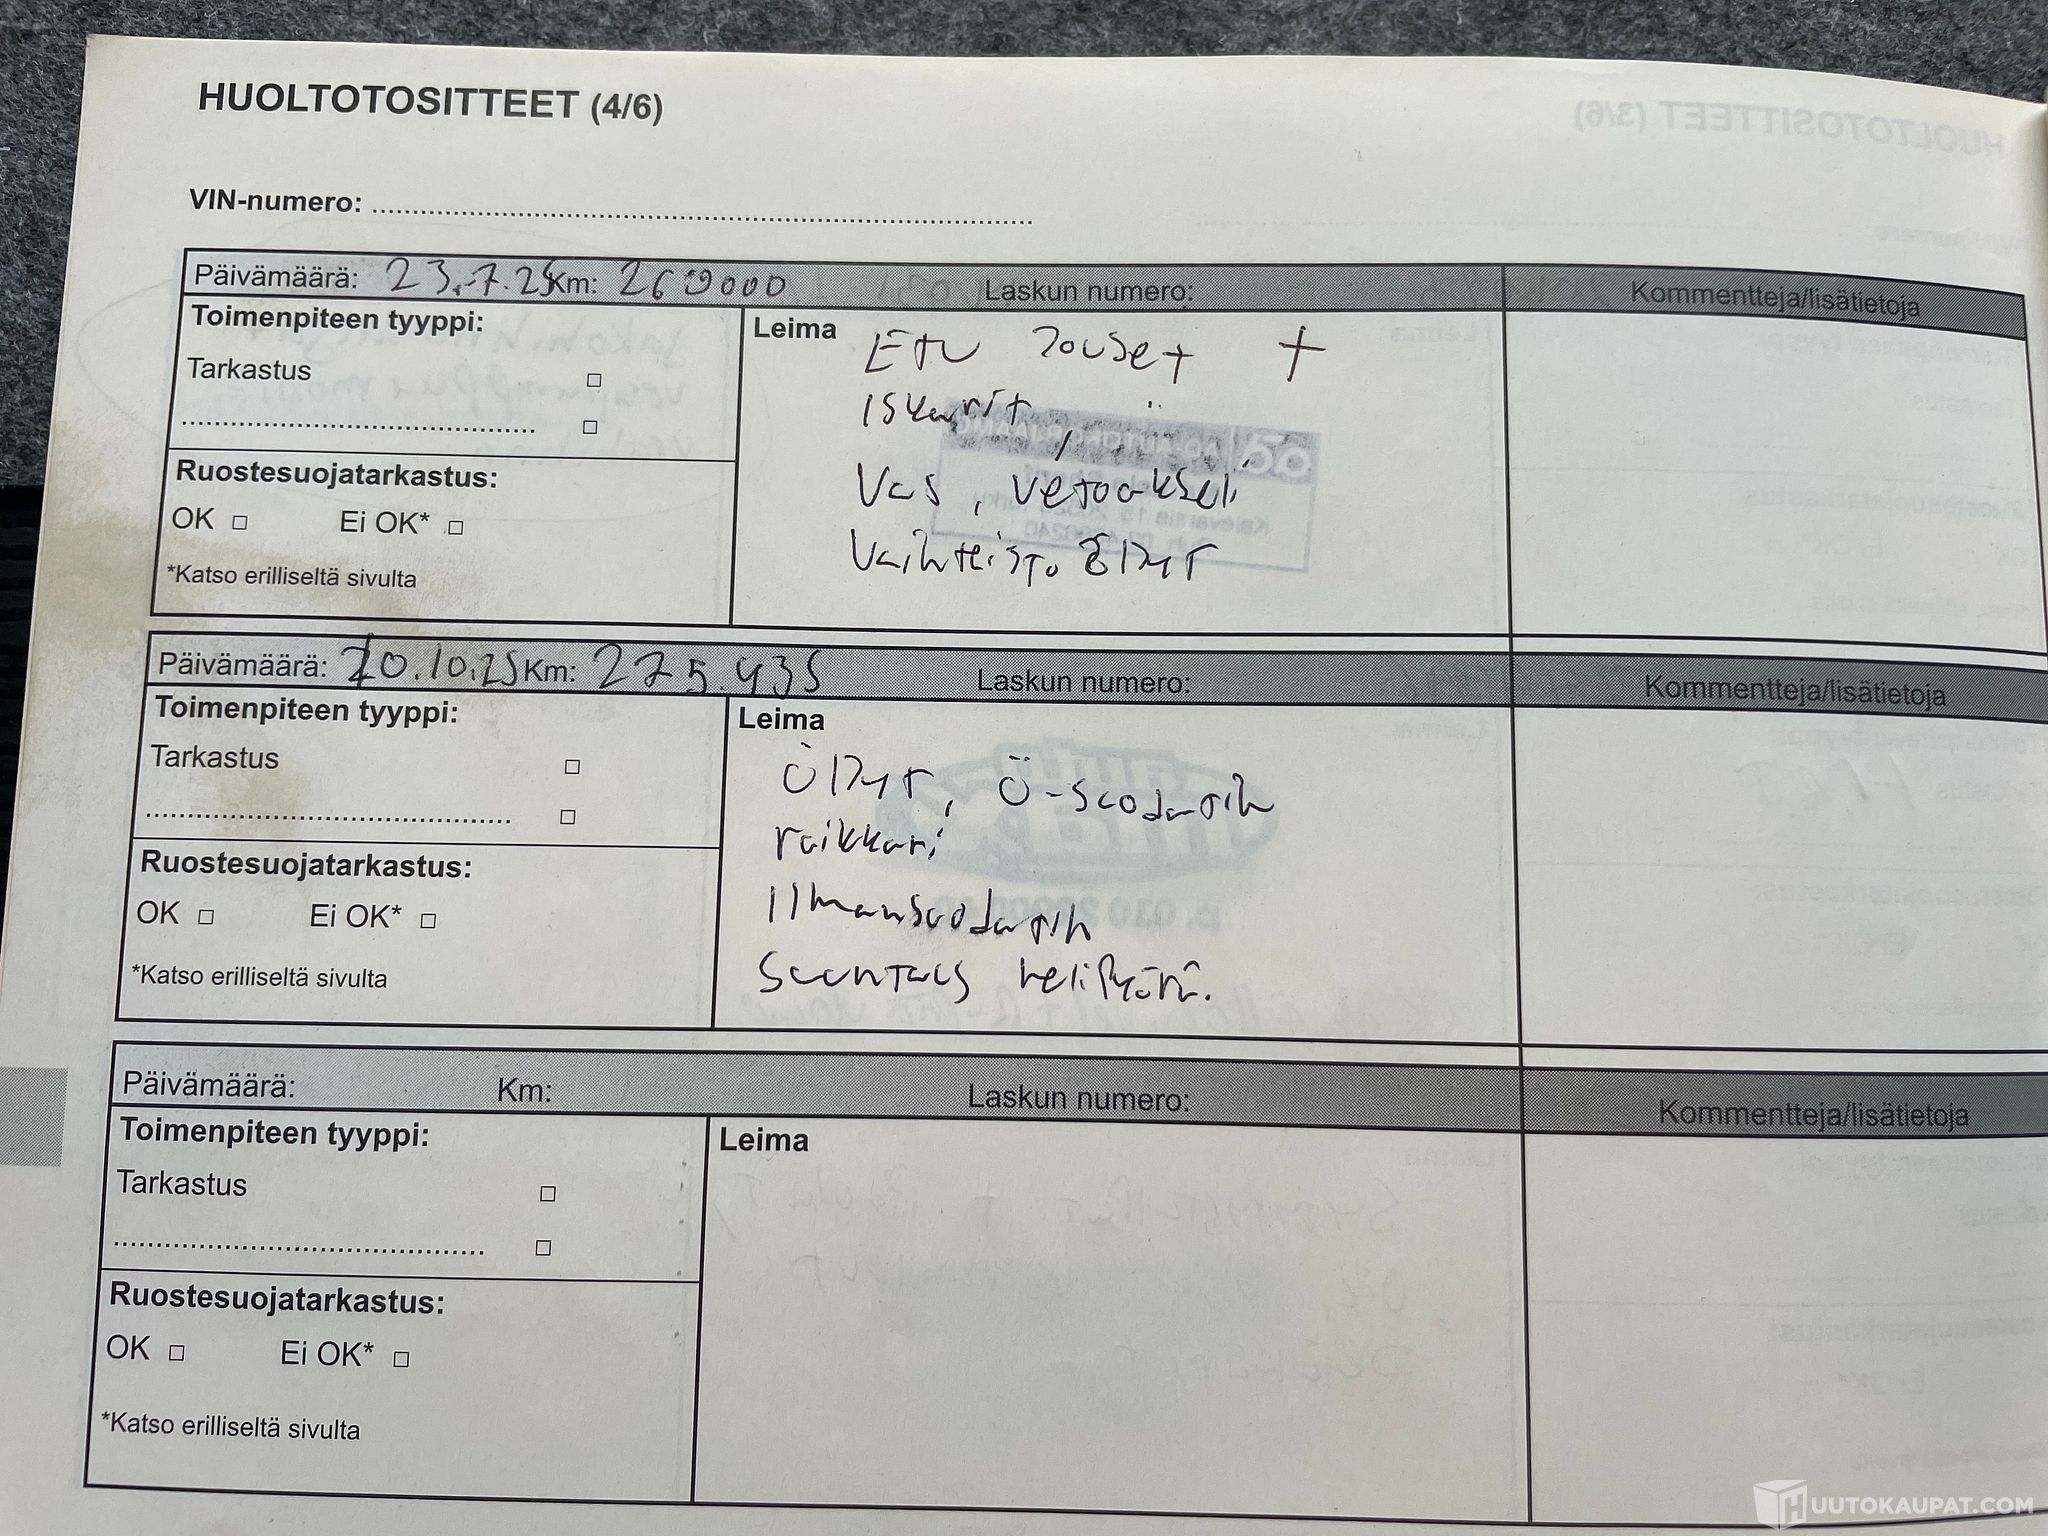 HUOLTOTOSITTEET (4/6)
VIN-numero:
Päivämäärä: 23.7.25 Km: 260000 Laskun numero: Kommentteja/lisätietoja
Toimenpiteen tyyppi:
Tarkastus
Ruostesuojatarkastus:
OK Ei OK*
*Katso erilliseltä sivulta
Leima
Etu Jouset +
iskarit,
Vas, vetoakseli
Vaihteisto Öljyt
Päivämäärä: 20.10.25 Km: 225.435 Laskun numero: Kommentteja/lisätietoja
Toimenpiteen tyyppi:
Tarkastus
Ruostesuojatarkastus:
OK Ei OK*
*Katso erilliseltä sivulta
Leima
Öljyt, Ö-suodatin
raikkari
Ilmansuodatin
Suuntaus nelipyörä.
Päivämäärä: Km: Laskun numero: Kommentteja/lisätietoja
Toimenpiteen tyyppi:
Tarkastus
Ruostesuojatarkastus:
OK Ei OK*
*Katso erilliseltä sivulta
Leima
HUUTOKAUPAT.COM